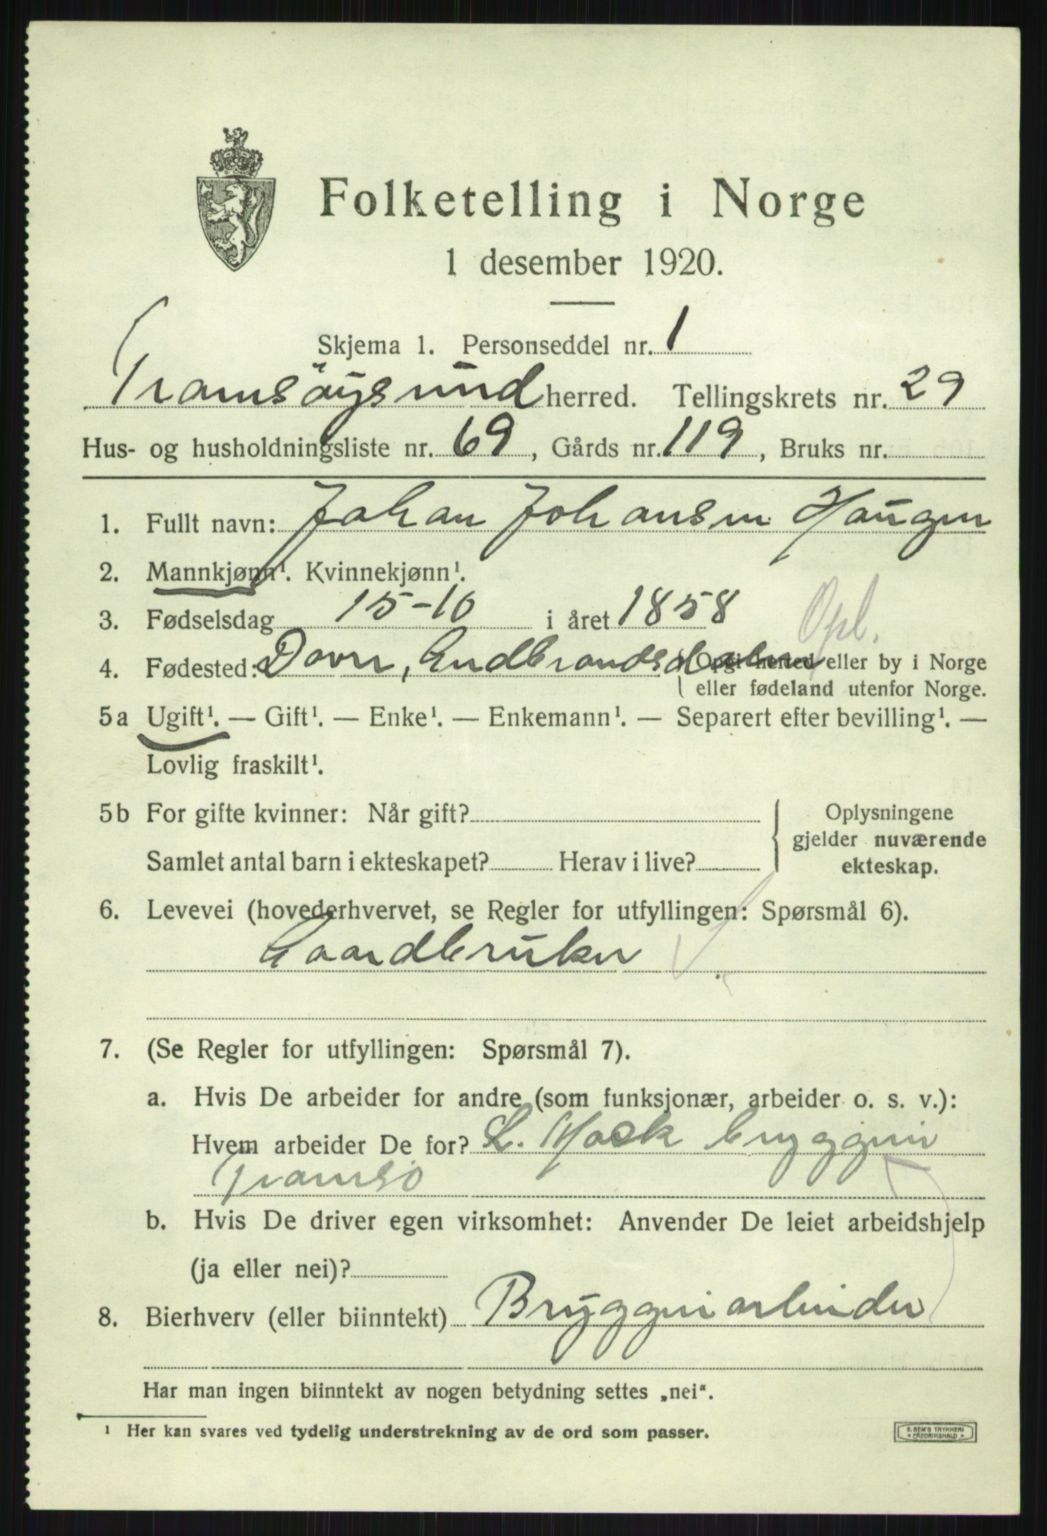 Folketelling i Norge
1 desember 1920.
Skjema 1. Personseddel nr. 1
Tromsöysund herred. Tellingskrets nr. 29
Hus- og husholdningsliste nr. 69, Gårds nr. 119, Bruks nr.
1. Fullt navn: Johan Johansen Haugen
2. Mannkjønn¹. Kvinnekjønn¹.
3. Fødselsdag 15-10 i året 1858
Opl.
4. Fødested: Dovre, Gudbrandsdalen (Opgi herred eller by i Norge
eller fødeland utenfor Norge.
5a Ugift¹. — Gift¹. — Enke¹. — Enkemann¹. — Separert efter bevilling¹. —
Lovlig fraskilt¹.
5b For gifte kvinner: Når gift?
Samlet antal barn i ekteskapet? Herav i live?
Oplysningene
gjelder nuværende
ekteskap.
6. Levevei (hovederhvervet, se Regler for utfyllingen: Spørsmål 6).
Gaardbruker
7. (Se Regler for utfyllingen: Spørsmål 7).
a. Hvis De arbeider for andre (som funksjonær, arbeider o. s. v.):
Hvem arbeider De for? L. Mack bryggeri
Tromsö
b. Hvis De driver egen virksomhet: Anvender De leiet arbeidshjelp
(ja eller nei)?
8. Bierhverv (eller biinntekt) Bryggeriarbeider
Har man ingen biinntekt av nogen betydning settes „nei“.
¹ Her kan svares ved tydelig understrekning av de ord som passer.
E. SEM'S TRYKKERI
FREDRIKSHALD